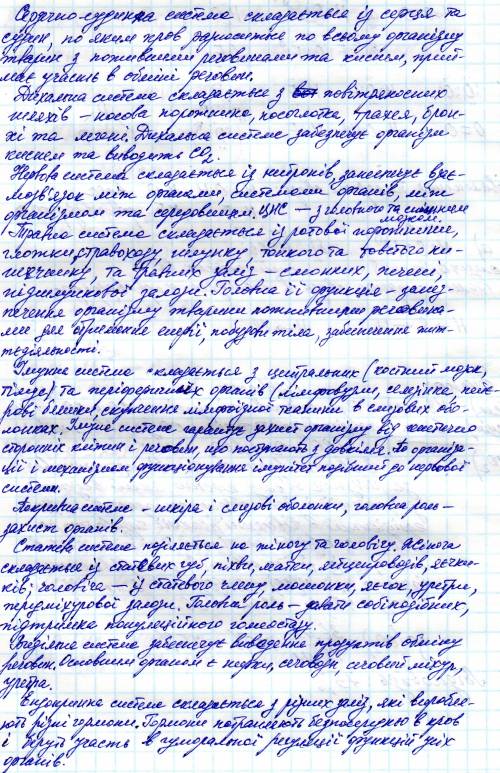 Серцево-судинна система складається із серця та
судин, по яким кров разноситься по всьому організму
тварин з поживними речовинами та киснем, прий-
має участь в обміні речовин.
Дихальна система складається з повітряносних
шляхів – носова порожнина, носоглотка, трахея, брон-
хі та легені. Дихальна система забезпечує організм
киснем та виводить CO₂.
Нервова система складається із нейронів, забезпечує вза-
мозв'язок між органами, системами органів, між
організмом та середовищем. ЦНС – з головного та спинного
мозку.
Травна система складається із ротової порожнини,
глотки, стравоходу, шлунку, тонкого та товстого ки-
шечнику, та травних заліз – слюнних, печені,
підшлункової залози. Головна її функція – забез-
печення організму тварини поживними речовина-
ми для отримання енергії, побудови тіла, забезпечення жит-
тєдіяльності.
Імунна система складається з центральних (костний мозок,
тімус) та періферичних органів (лімфовузли, селезінка, пейє-
рові бляшки, скупчення лімфоїдної тканини в слизових обо-
лонках. Імунна система гарантує захист організму від генетично
сторонніх клітин і речовин, що поступають з довкілля. По організа-
ції і механізмом функціонування імунітет подібний до нервової
системи.
Покривна система – шкіра і слизові оболонки, головна роль –
захист органів.
Статева система поділяється на жіночу та чоловічу. Жіноча
складається із статевих губ, піхви, матки, яйцепроводів, яєчни-
ків; чоловіча – із статевого члену, мошонки, яєчок, уретри,
передміхурової залози. Головна роль – давати собіподібних,
підтримка популяційного гомеостазу.
Видільна система забезпечує виведення продуктів обміну
речовин. Основними органами є нирки, сечоводи, сечовий міхур,
уретра.
Ендокринна система складається з різних заліз, які виробля-
ють різні гормони. Гормони потрапляють безпосередньо в кров
і беруть участь в гуморальної регуляції функцій усіх
органів.